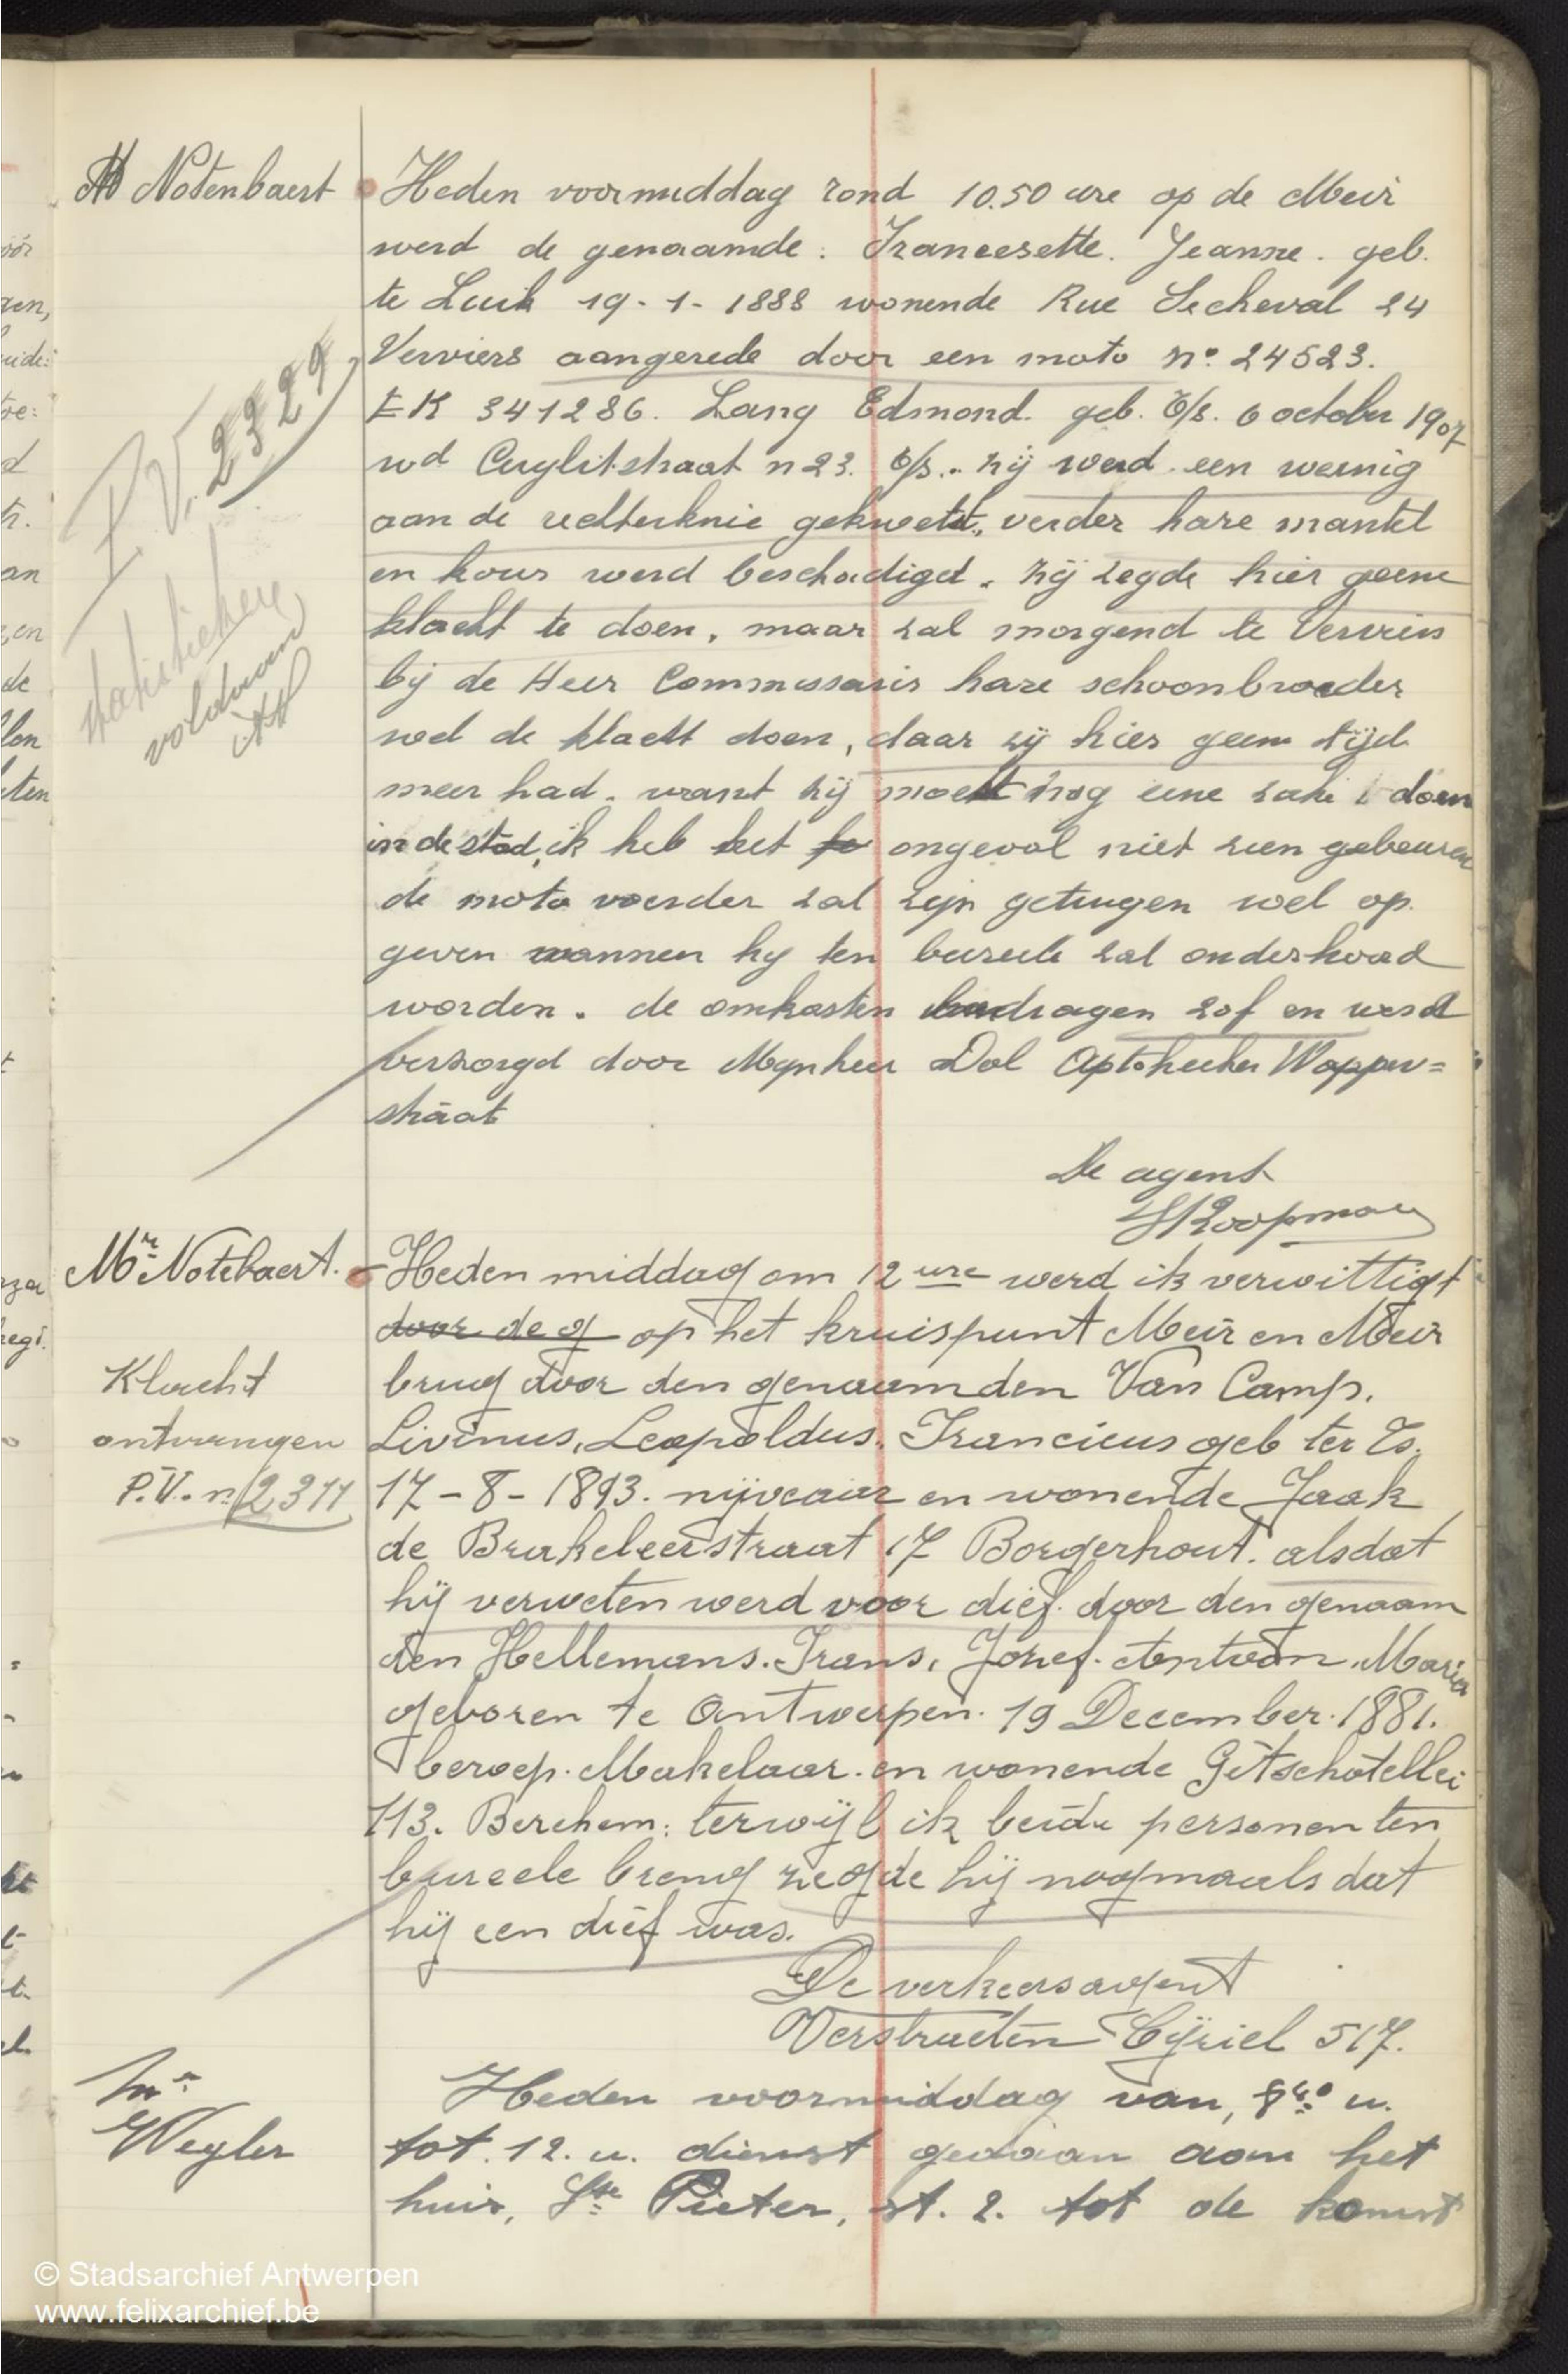 Mr Notenbaert
Heden voormiddag rond 10.50 ure op de Meir
werd de genaamde: Francesette. Jeanne. geb.
te Luik 19-1-1888 wonende Rue Secheval 24
Verviers aangerede door een moto no. 24523.
EK 341286. Lang Edmond. geb. t/s. 6 october 1907
wd Cuylitstraat n 23. t/s.. zij werd een weinig
aan de rechterknie gekwetst, verder hare mantel
en kous werd beschadigd. zij zegde hier geene
klacht te doen, maar zal morgend te Verviers
bij de Heer Commissaris hare schoonbroeder
wel de klacht doen, daar zij hier geen tijd
meer had. want zij moest nog eene zake doen
in de stad, ik heb het ongeval niet zien gebeuren
de moto voerder zal zijn getuigen wel op
geven wannen hy ten bureele zal onderhoord
worden. de omkosten bedragen 20f en werd
verzorgd door Mynheer Dol Aptoheeker Wapper=
straat
P.V. 2329
voldaan
De agent
Koopman
Mr Notebaert.
Heden middag om 12 ure werd ik verwittigt
door de g op het kruispunt Meir en Meir
brug door den genaamden Van Camp.
Livinus, Leopoldus. Francicus geb ter Ts.
17-8-1893. nijveraar en wonende Jaak
de Brakeleerstraat 17 Borgerhout. alsdat
hij verweten werd voor dief. door den genaam
den Hellemans. Frans, Jozef. Antoon. Maria
geboren te Antwerpen. 19 December. 1881.
beroep. Makelaar. en wonende Gitschotellei
113. Berchem: terwijl ik beide personen ten
bureele breng zegde hij nogmaals dat
hij een dief was.
Klacht
ontvangen
P.V. n 2311
De verkeersagent
Verstraeten Cyriel 517.
Mr
Weyler
Heden voormiddag van, 8 40 u.
tot 12. u. dienst gedaan aan het
huis, Ste Pieter, st. 2. tot de komst
© Stadsarchief Antwerpen
www.felixarchief.be